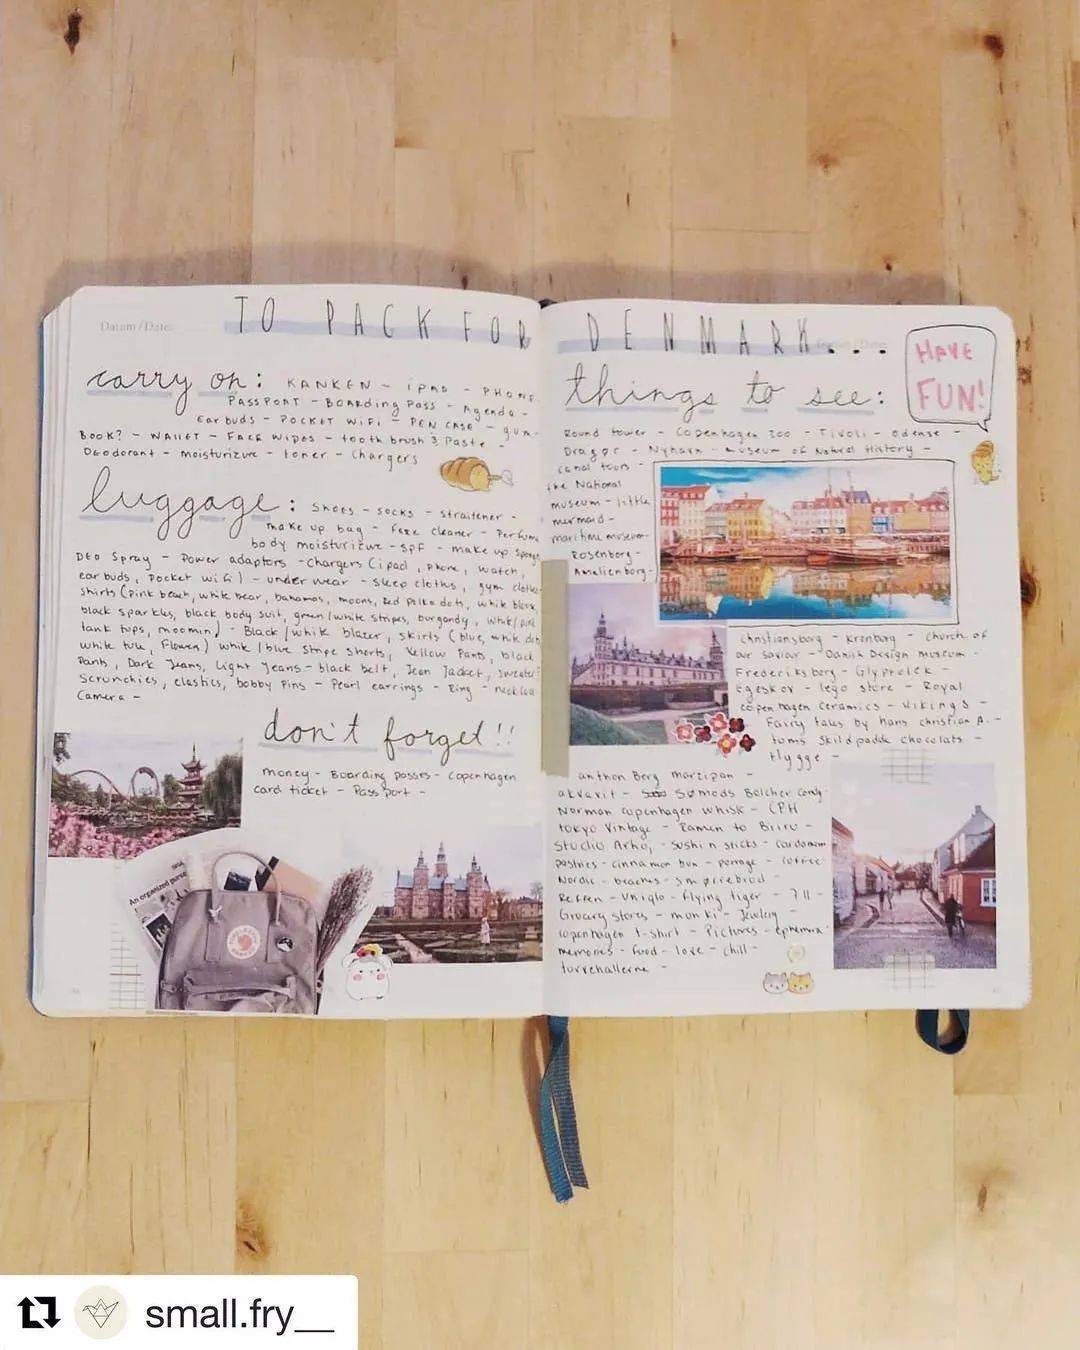 Datum / Date:
TO PACK FOR
carry on: KANKEN - iPAD - PHONE
PASSPORT - BOARding PASS - Agenda -
Earbuds - POCKET WiFi - PEN CASE - gum-
BOOK? - WALLET - FACE WIPES - tooth brush & Paste -
Deodorant - moisturizure - toner - Chargers
luggage: SHOES - SOCKS - straitener -
make up bag - Face cleaner - Perfume
body moisturizure - SPF - make up sponge
DEO Spray - Power adaptors - Chargers (ipad, phone, watch,
ear buds, Pocket wifi) - under wear - sleep cloths, gym cloths
shirts (pink beach, white bear, bahamas, moons, Red Polka dots, white blouse,
black sparkles, black body suit, green/white stripes, burgandy, white/pink
tank tops, moomin) - Black/white blazer, skirts (blue, white dot
white tule, Flower) white/blue stripe shorts, Yellow Pants, black
Pants, Dark Jeans, Light Jeans - black belt, Jean Jacket, sweater
Scrunchies, elastics, bobby Pins - Pearl earrings - Ring - necklace
Camera -
don't forget!!
money - Boarding passes - Copenhagen
card ticket - Passport -
An organized purse
DENMARK...
HAVE
FUN!
things to see:
Round tower - Copenhagen zoo - Tivoli - odense -
Dragør - Nyhavn - museum of Natural History -
canal tours -
the National
museum - little
mermaid -
maritime museum-
Rosenborg -
Amalienborg -
Christiansborg - Kronborg - church of
our saviour - Danish Design museum -
Frederiksberg - Glyptotek -
Egeskov - lego store - Royal
copenhagen ceramics - Vikings -
Fairy tales by hans christian A. -
toms Skildpadde chocolats -
Hygge -
anthon Berg marzipan -
akvavit - Sømods Bolcher candy
Norman copenhagen whisk - CPH
tokyo Vintage - Ramen to Biiru -
Studio Arhoj - Sushi n sticks - cardamom
pastries - cinnamon bun - porrage - coffee
Nordic - beaches - smørrebrød -
Reffen - Uniqlo - flying tiger - 711 -
Grocery stores - monki - Jewlery -
copenhagen t-shirt - Pictures - ephemra -
memories - food - love - chill -
torvehallerne -
small.fry__